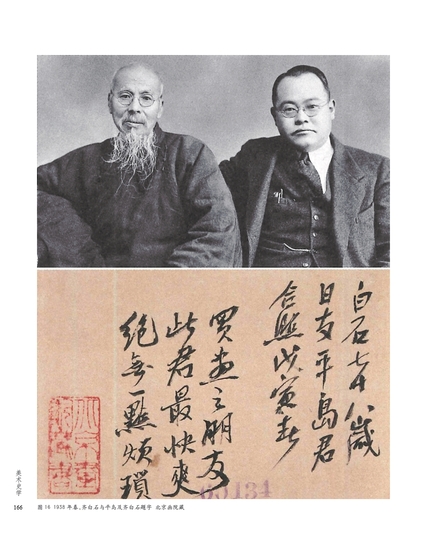 白石七十八歲
日友平島君
合照戊寅春
買畫之朋友
此君最快爽
絕無一點煩瑣
60434
美术史学
166
图 16 1938 年春，齐白石与平岛及齐白石题字 北京画院藏